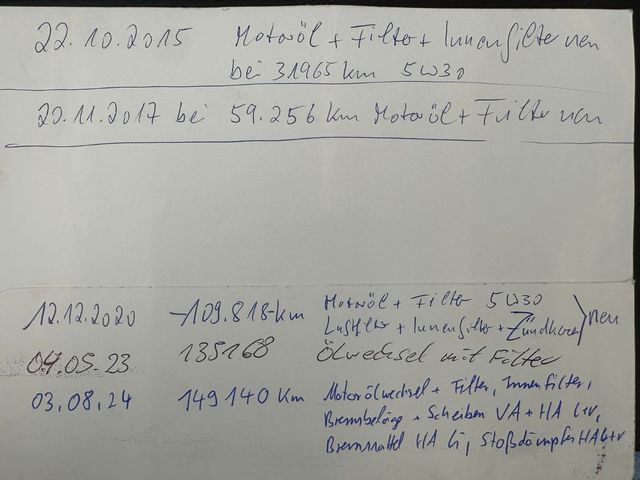 22.10.2015 Motoröl + Filter + Innenfilter neu
bei 31965 km 5W30
20.11.2017 bei 59.256 km Motoröl + Filter neu
12.12.2020 109.818-km Motoröl + Filter 5W30
Luftfilter + Innenfilter + Zündkerzen neu
04.05-23 135168 Ölwechsel mit Filter
03.08.24 149140 Km Motorölwechsel + Filter, Innenfilter,
Bremsbeläge + Scheiben VA + HA L+r,
HA li, Stoßdämpfer HA l+r